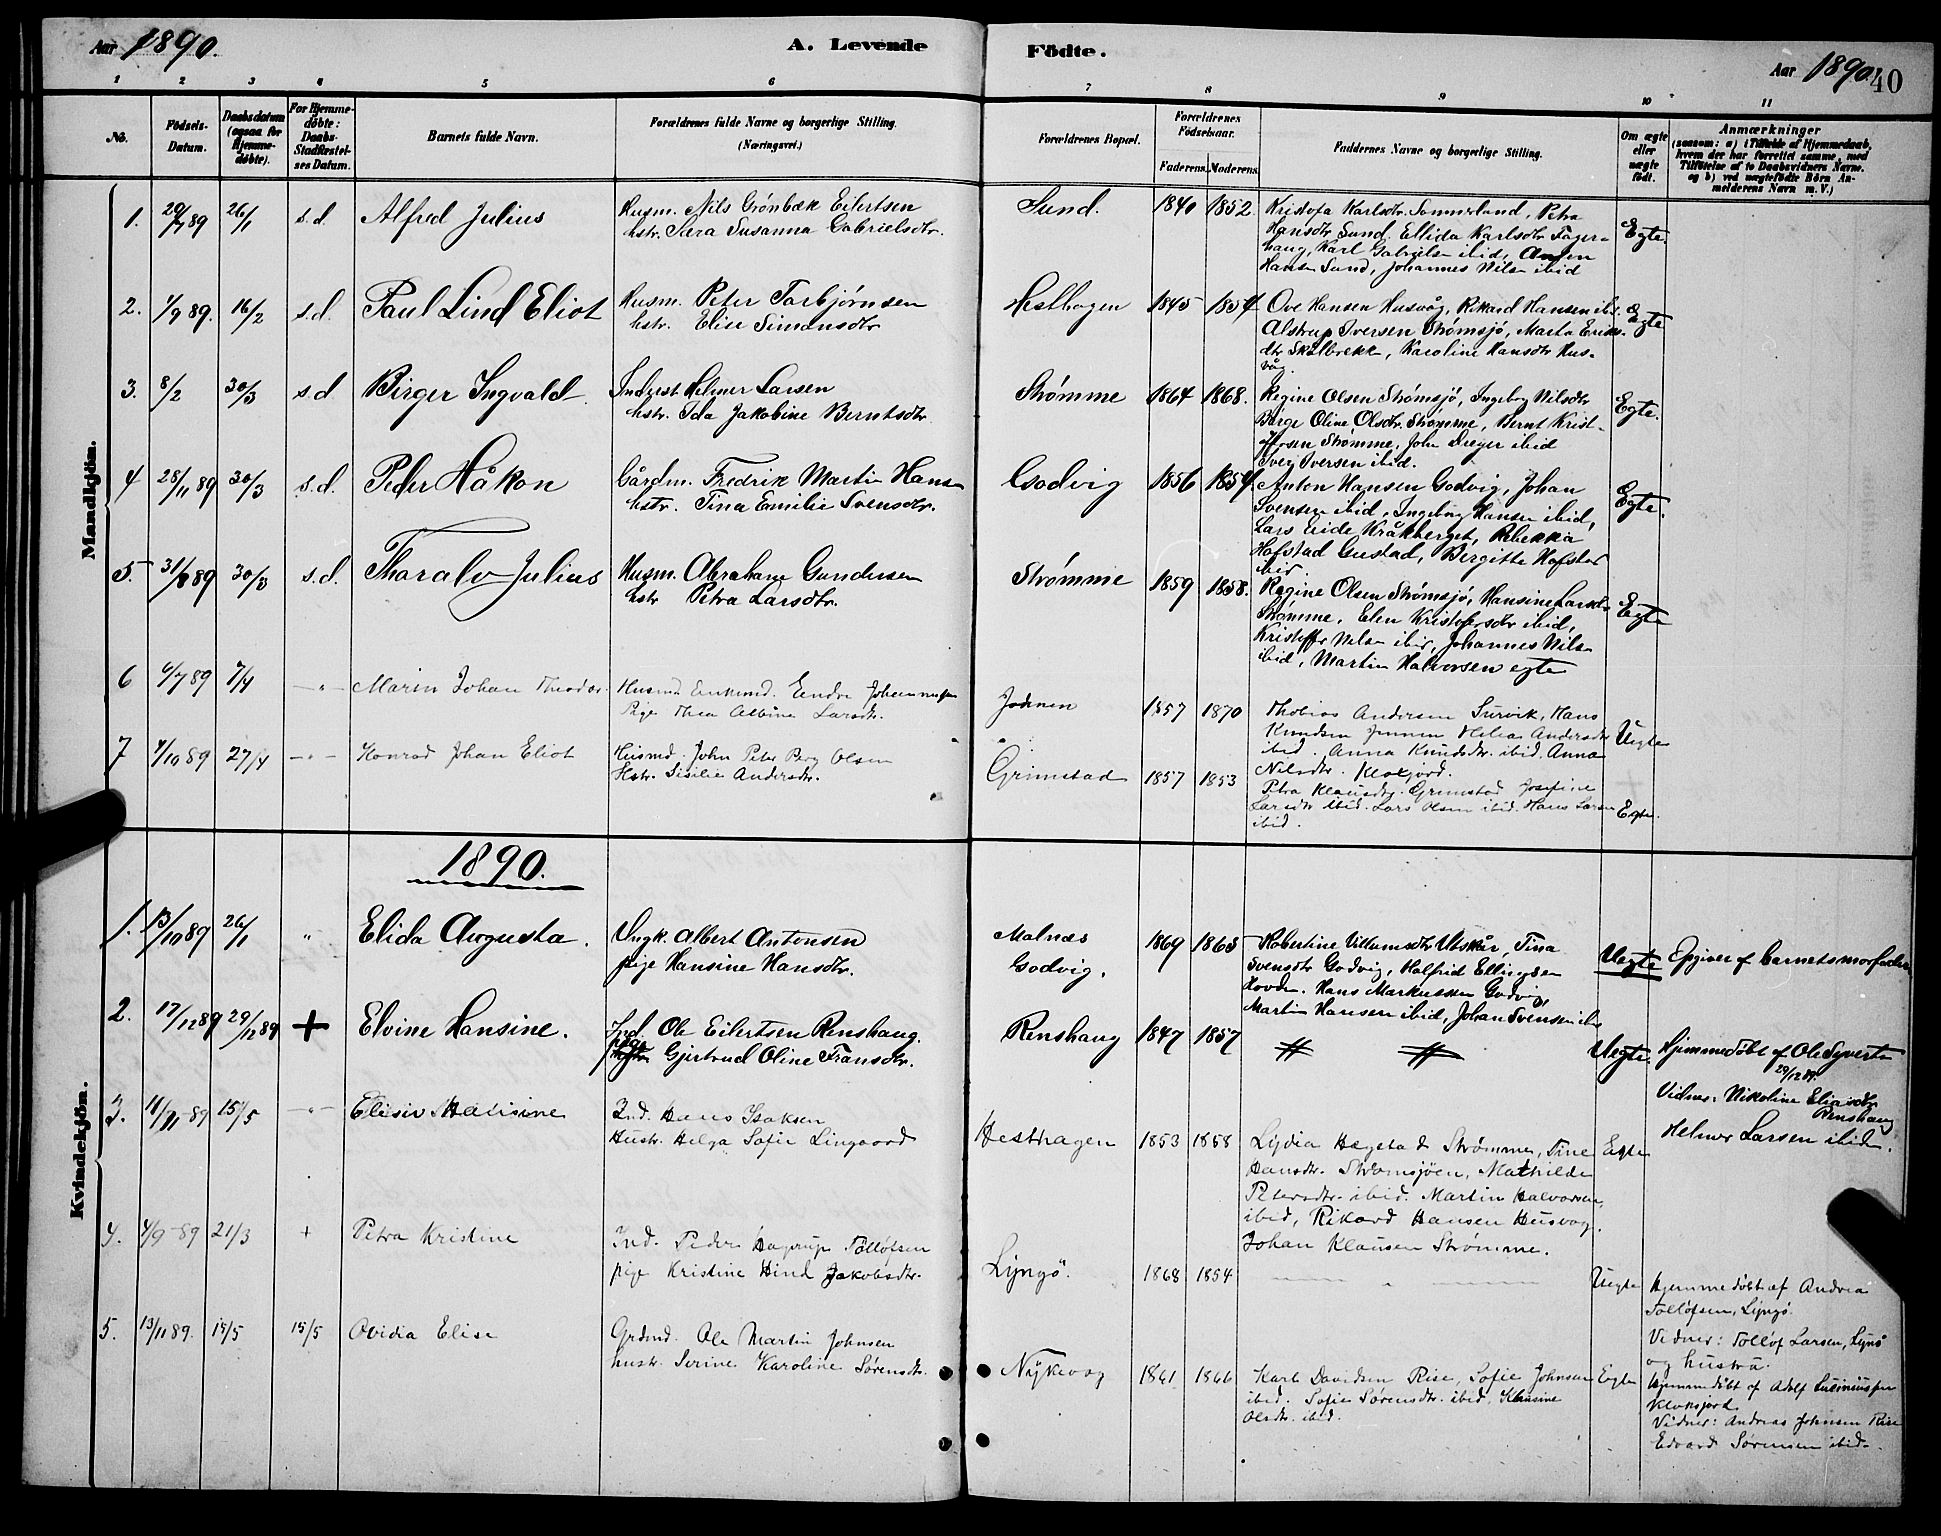 Aar 1890.
A. Levende Födte.
Aar 1890.
40
1 2 3 4 5 6 7 8 9 10 11
No.
Födsels-Datum.
Daabsdatum (ogsaa for Hjemme-döbte).
For Hjemme-döbte: Daabs-Stadfæstel-ses Datum.
Barnets fulde Navn.
Forældrenes fulde Navne og borgerlige Stilling.
(Næringsvei.)
Forældrenes Bopæl.
Forældrenes Födselsaar.
Faderens. Moderens.
Faddernes Navne og borgerlige Stilling.
Om ægte eller uægte födt.
Anmærkninger
(saasom: a) i Tilfælde af Hjemmedaab,
hvem der har forrettet samme, med
Tilföielse af to Daabsvidners Navne.
og b) ved uægtefödte Börn An-
melderens Navn m. V.)
Mandkjön.
1. 29/7 89 26/1 s.d. Alfred Julius
Husm. Nils Grönbæk Eilertsen
hstr. Sara Susanna Gabrielsdtr.
Sund. 1840 1852
Kristofa Karlsdtr. Sommerland, Petra
Hansdtr Sund. Ellida Karlsdtr Fager-
haug, Karl Gabrielsen ibid,
Hansen Sund, Johannes Nilsen ibid
Egte.
2. 1/9 89. 16/2 s.d. Paul Lind Eliot
Husm. Peter Torbjörnsen
hstr. Elise Simonsdtr
Hesthagen 1845 1854
Ove Hansen Husvåg, Rikard Hansen ibid.
Alstrup Iversen Strömsjö, Marta Eriks-
dtr Skålbrekk, Karoline Hansdtr Hus-
våg.
Egte
3. 8/2 30/3 s.d Birger Ingvald.
Inderst Helmer Larsen
hstr. Ida Jakobine Berntsdtr.
Strömme 1864 1868.
Regine Olsen Strömsjö, Ingeborg Nilsdtr
Börge Oline Olsdtr. Strömme, Bernt Krist-
ofersen Strömme, John Dreyer ibid
Iver Iversen ibid.
Egte.
4 28/11 89 30/3 s.d. Peder Håkon
Gårdm. Fredrik Martin Hansen
hstr. Tina Emilie Svensdtr.
Godvig 1856 1854.
Anton Hansen Godvig, Johan
Svensen ibid, Ingeborg Hansen ibid,
Lars Eide Kråkberget, Rebekka
Hofstad Gustad, Bergitte Hofstad
ibid
Egte.
5. 31/8 89 30/3 s.d. Tharalv Julius
Husm. Abraham Gundersen
hstr Petra Larsdtr.
Strömme 1859 1858.
Regine Olsen Strömsjö, Hansine Larsdtr
Strömme, Elen Kristofersdtr ibid,
Kristoffer Nilsen ibid, Johannes Nilsen
ibid, Martin Halvorsen egte
Egte
6 6/7 89 7/4 — " — Marin Johan Theodor.
Husmd Enkemd. Endre Johannessen
Pige Thea Albine Larsdtr.
Jönnen 1857 1870
Thobias Andersen Survik, Hans
Knudsen Jönnen Helia Andersdtr
ibid. Anna Knudsdtr. ibid. Anna
Nilsdtr. Kloxjord.
Uegte
7 4/10 89 27/4 — " — Konrad Johan Eliot
Husmd. John Peter Berg Olsen
Hstr. Sisilie Andersdtr.
Grimstad 1857 1853
Petra Klausdtr. Grimstad Josefine
Larsdtr ibid. Lars Olsen ibid. Hans Larsen
ibid.
Egte.
1890.
Kvindekjön.
1. 13/10 89 26/1 " Elida Augusta.
Ungk. Albert Antonsen
pige Hansine Hansdtr.
Malnæs
Godvig.
1869 1863
Robertine Villumsdtr Utskår, Tina
Svensdtr Godvig, Halfrid Ellingsen
Hovden. Hans Markussen Godvig,
Martin Hansen ibid, Johan Svensen ibid
Uegte
Opgiver af barnets morfader
2. 17/12 89 29/12 89 + Elvine Hansine.
Ind. Ole Eilertsen Renshaug.
pige Gjertrud Oline Fransdtr.
Renshaug 1847 1857
Uegte.
Hjemmedöbt af Ole Syvertsen
29/12 89.
Vidner: Nikoline Eliasdtr
Renshaug
Helmer Larsen ibid.
3. 11/11-89 15/5 — " — Elisiv Matisine
Ind. Hans Isaksen
Hustr. Helga Sofie Lingaard
Hesthagen 1853 1858
Lydia Hegstad Strömme, Tine
Hansdtr. Strömsjöen, Mathilde
Petersdtr. ibid. Martin Halvorsen,
ibid, Rikard Hansen Husvåg.
Johan Klausen Strömme.
Egte
4. 4/9-89 21/3 + Petra Kristine
Ind. Peder Hagerup Tollöfsen
pige Kristine Hind Jakobsdtr.
Lyngö. 1868 1854
— " —
Uegte
Hjemmedöbt af Andrea
Tollöfsen, Lyngö.
Vidner: Tollöf Larsen, Lyngö
og hustru.
5. 13/11 89. 15/5 15/5 Ovidia Elise
Grdmd. Ole Martin Johnsen
hustr. Serine Karoline Sörensdtr.
Nykvog 1861 1866
Karl Davidsen Rise, Sofie Johnsen
ibid. Sofie Sörensdtr. ibid, Klausine
Olsdtr. ibid.
Egte
Hjemmedöbt af Adolf Lusiniussen
Kloksjord.
Vidner: Andreas Johnsen Rise
Edvard Sörensen ibid.